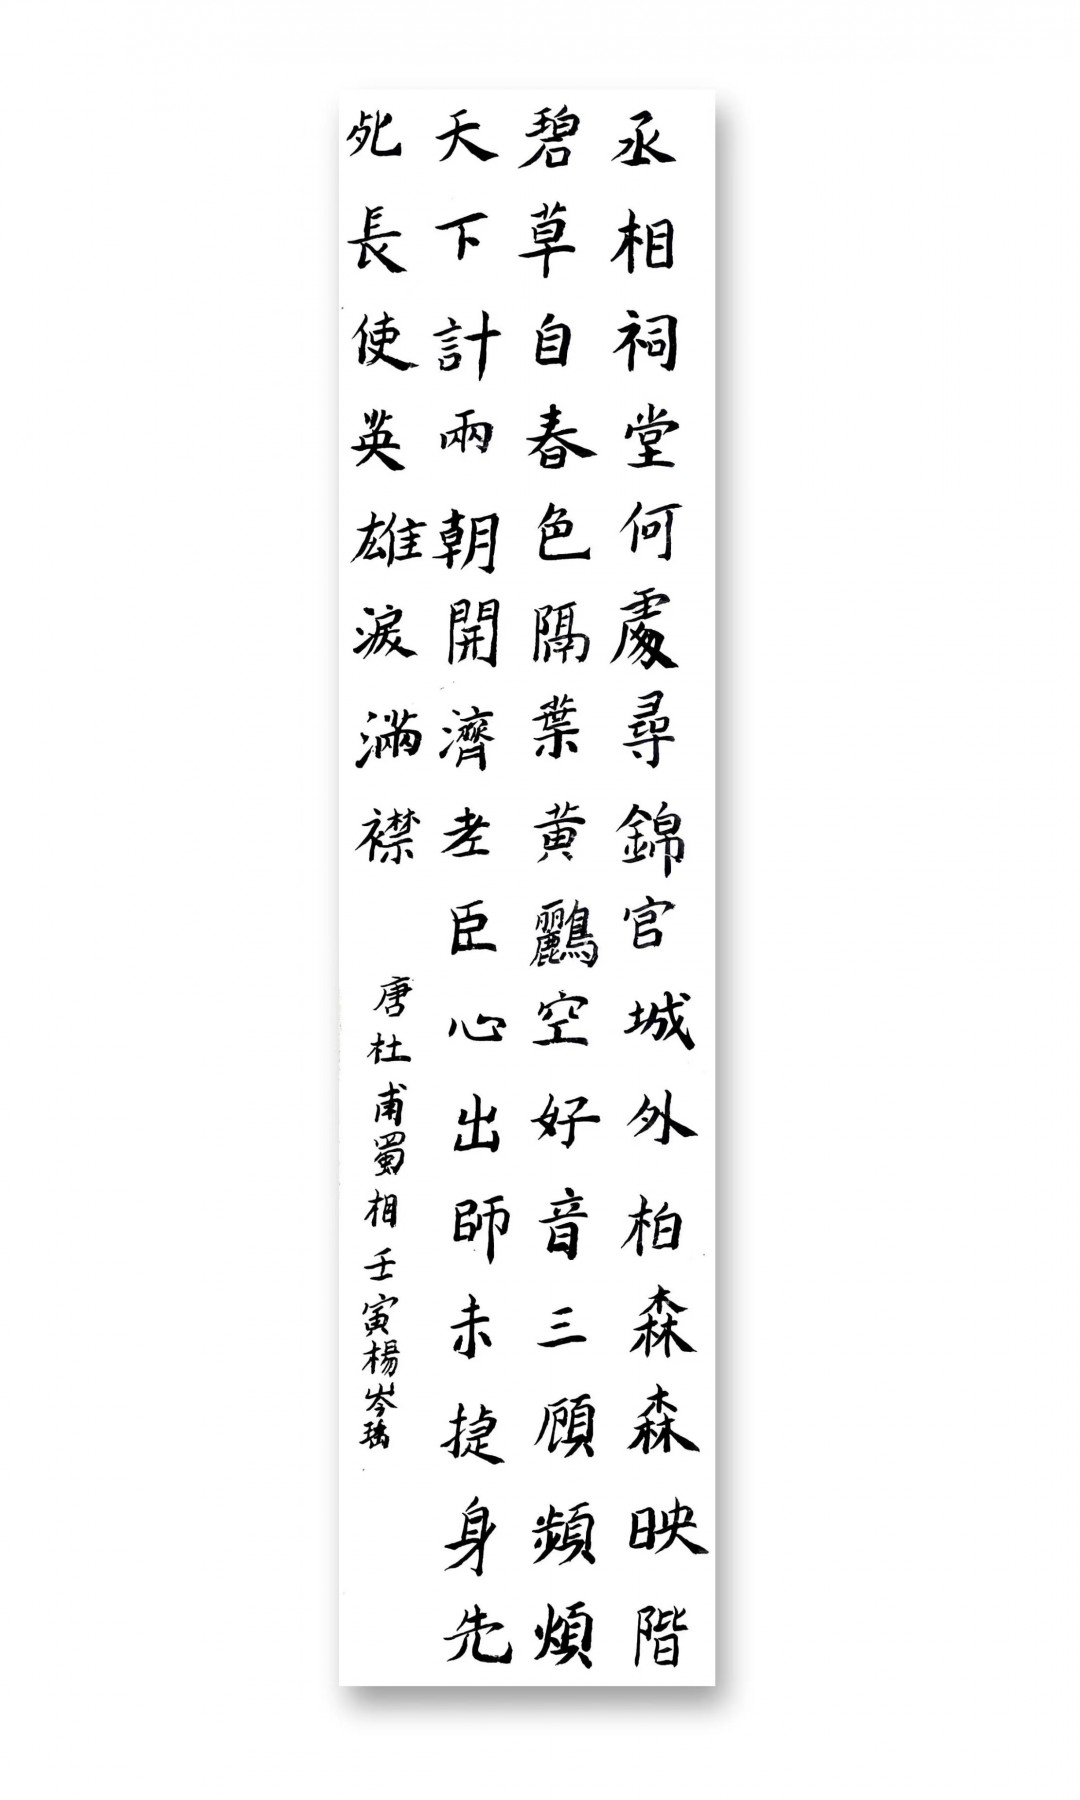 丞相祠堂何處尋錦官城外柏森森映階
碧草自春色隔葉黄鸝空好音三顧頻煩
天下計兩朝開濟老臣心出師未捷身先
死長使英雄淚滿襟
唐杜甫蜀相壬寅楊岑瑀